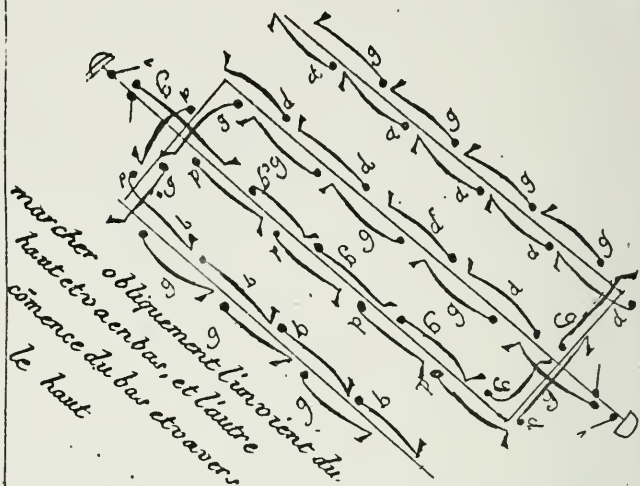 marcher obliquement l'un vient du
haut et va en bas, et l'autre
cõmence du bas et va vers
le haut